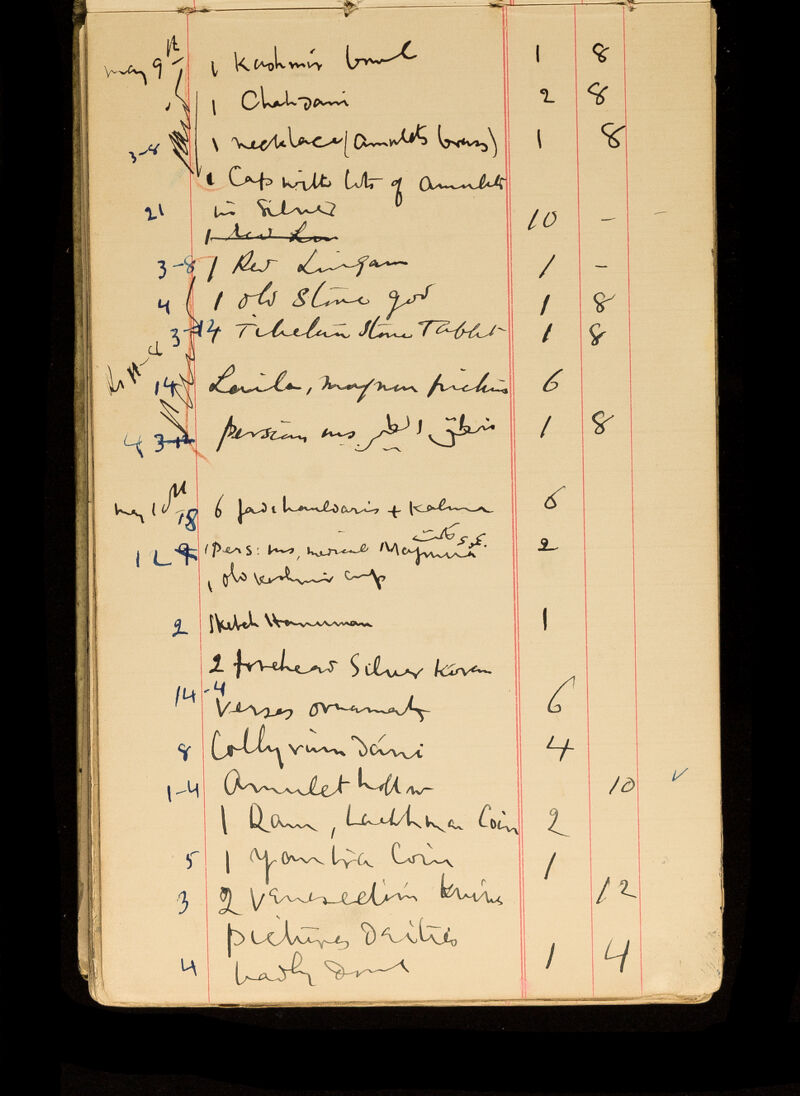 May 9th 1 Kashmir bowl 1 8
1 Chahdani 2 8
3-8 1 necklace (amulets brass) 1 8
1 Cap with lots of amulets
21 in Silver 10 - -
1 Red Lin
3-8 1 Red Lingam 1 -
4 1 old Stone god 1 8
3-12 4 Tibetan Stone Tablet 1 8
Rs 11-8
14 Laila, Majnun 6
4 3-12 Persian ms 1 8
May 10th 18 6 + Kalma 6
12 1 Pers: ms, medical 2
1 old Kashmir cup
2 Sketch Hanuman 1
2 forehead Silver Koran
14-4 Verses ornaments 6
8 Collyrium Dáni 4
1-4 Amulet hollow 10 ✓
1 Ram, Lachhman Coin 2
5 1 Yantra Coin 1
3 2 Venesection knives 12
Pictures Deities
4 badly done 1 4